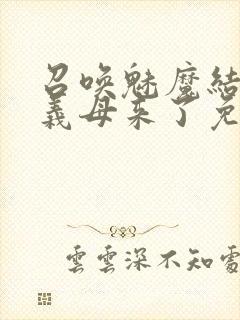 召唤魅魔结
义母来了免
云云深不知处